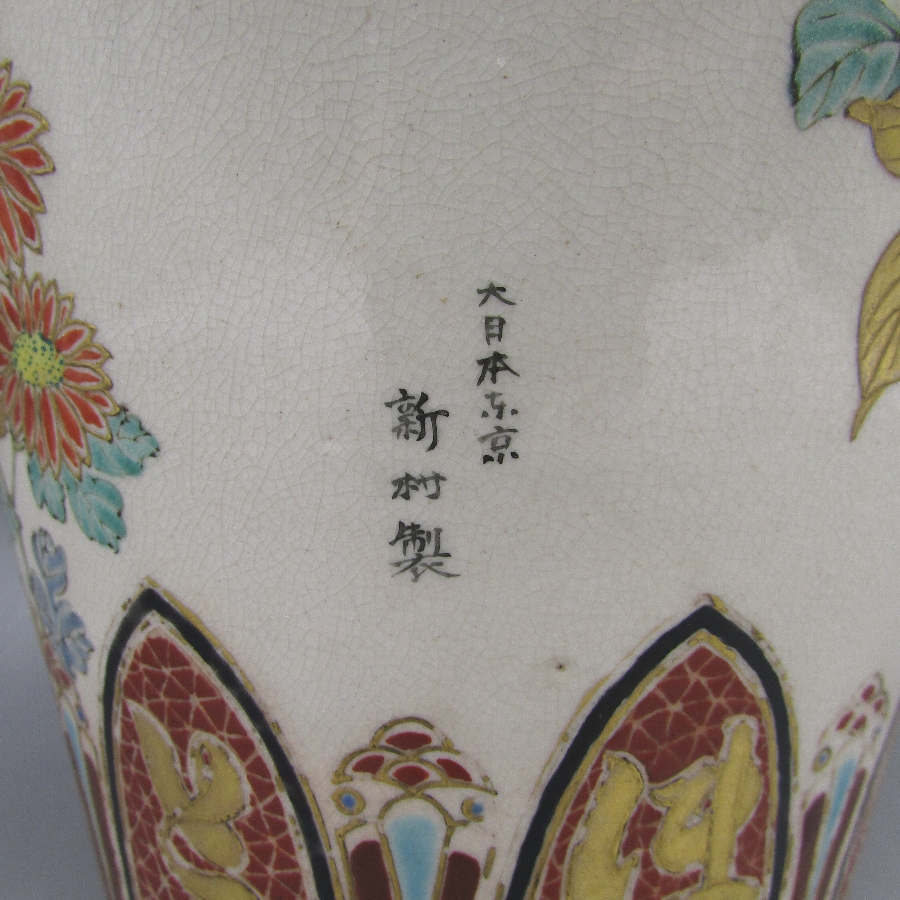 大日本东京
新村製
は